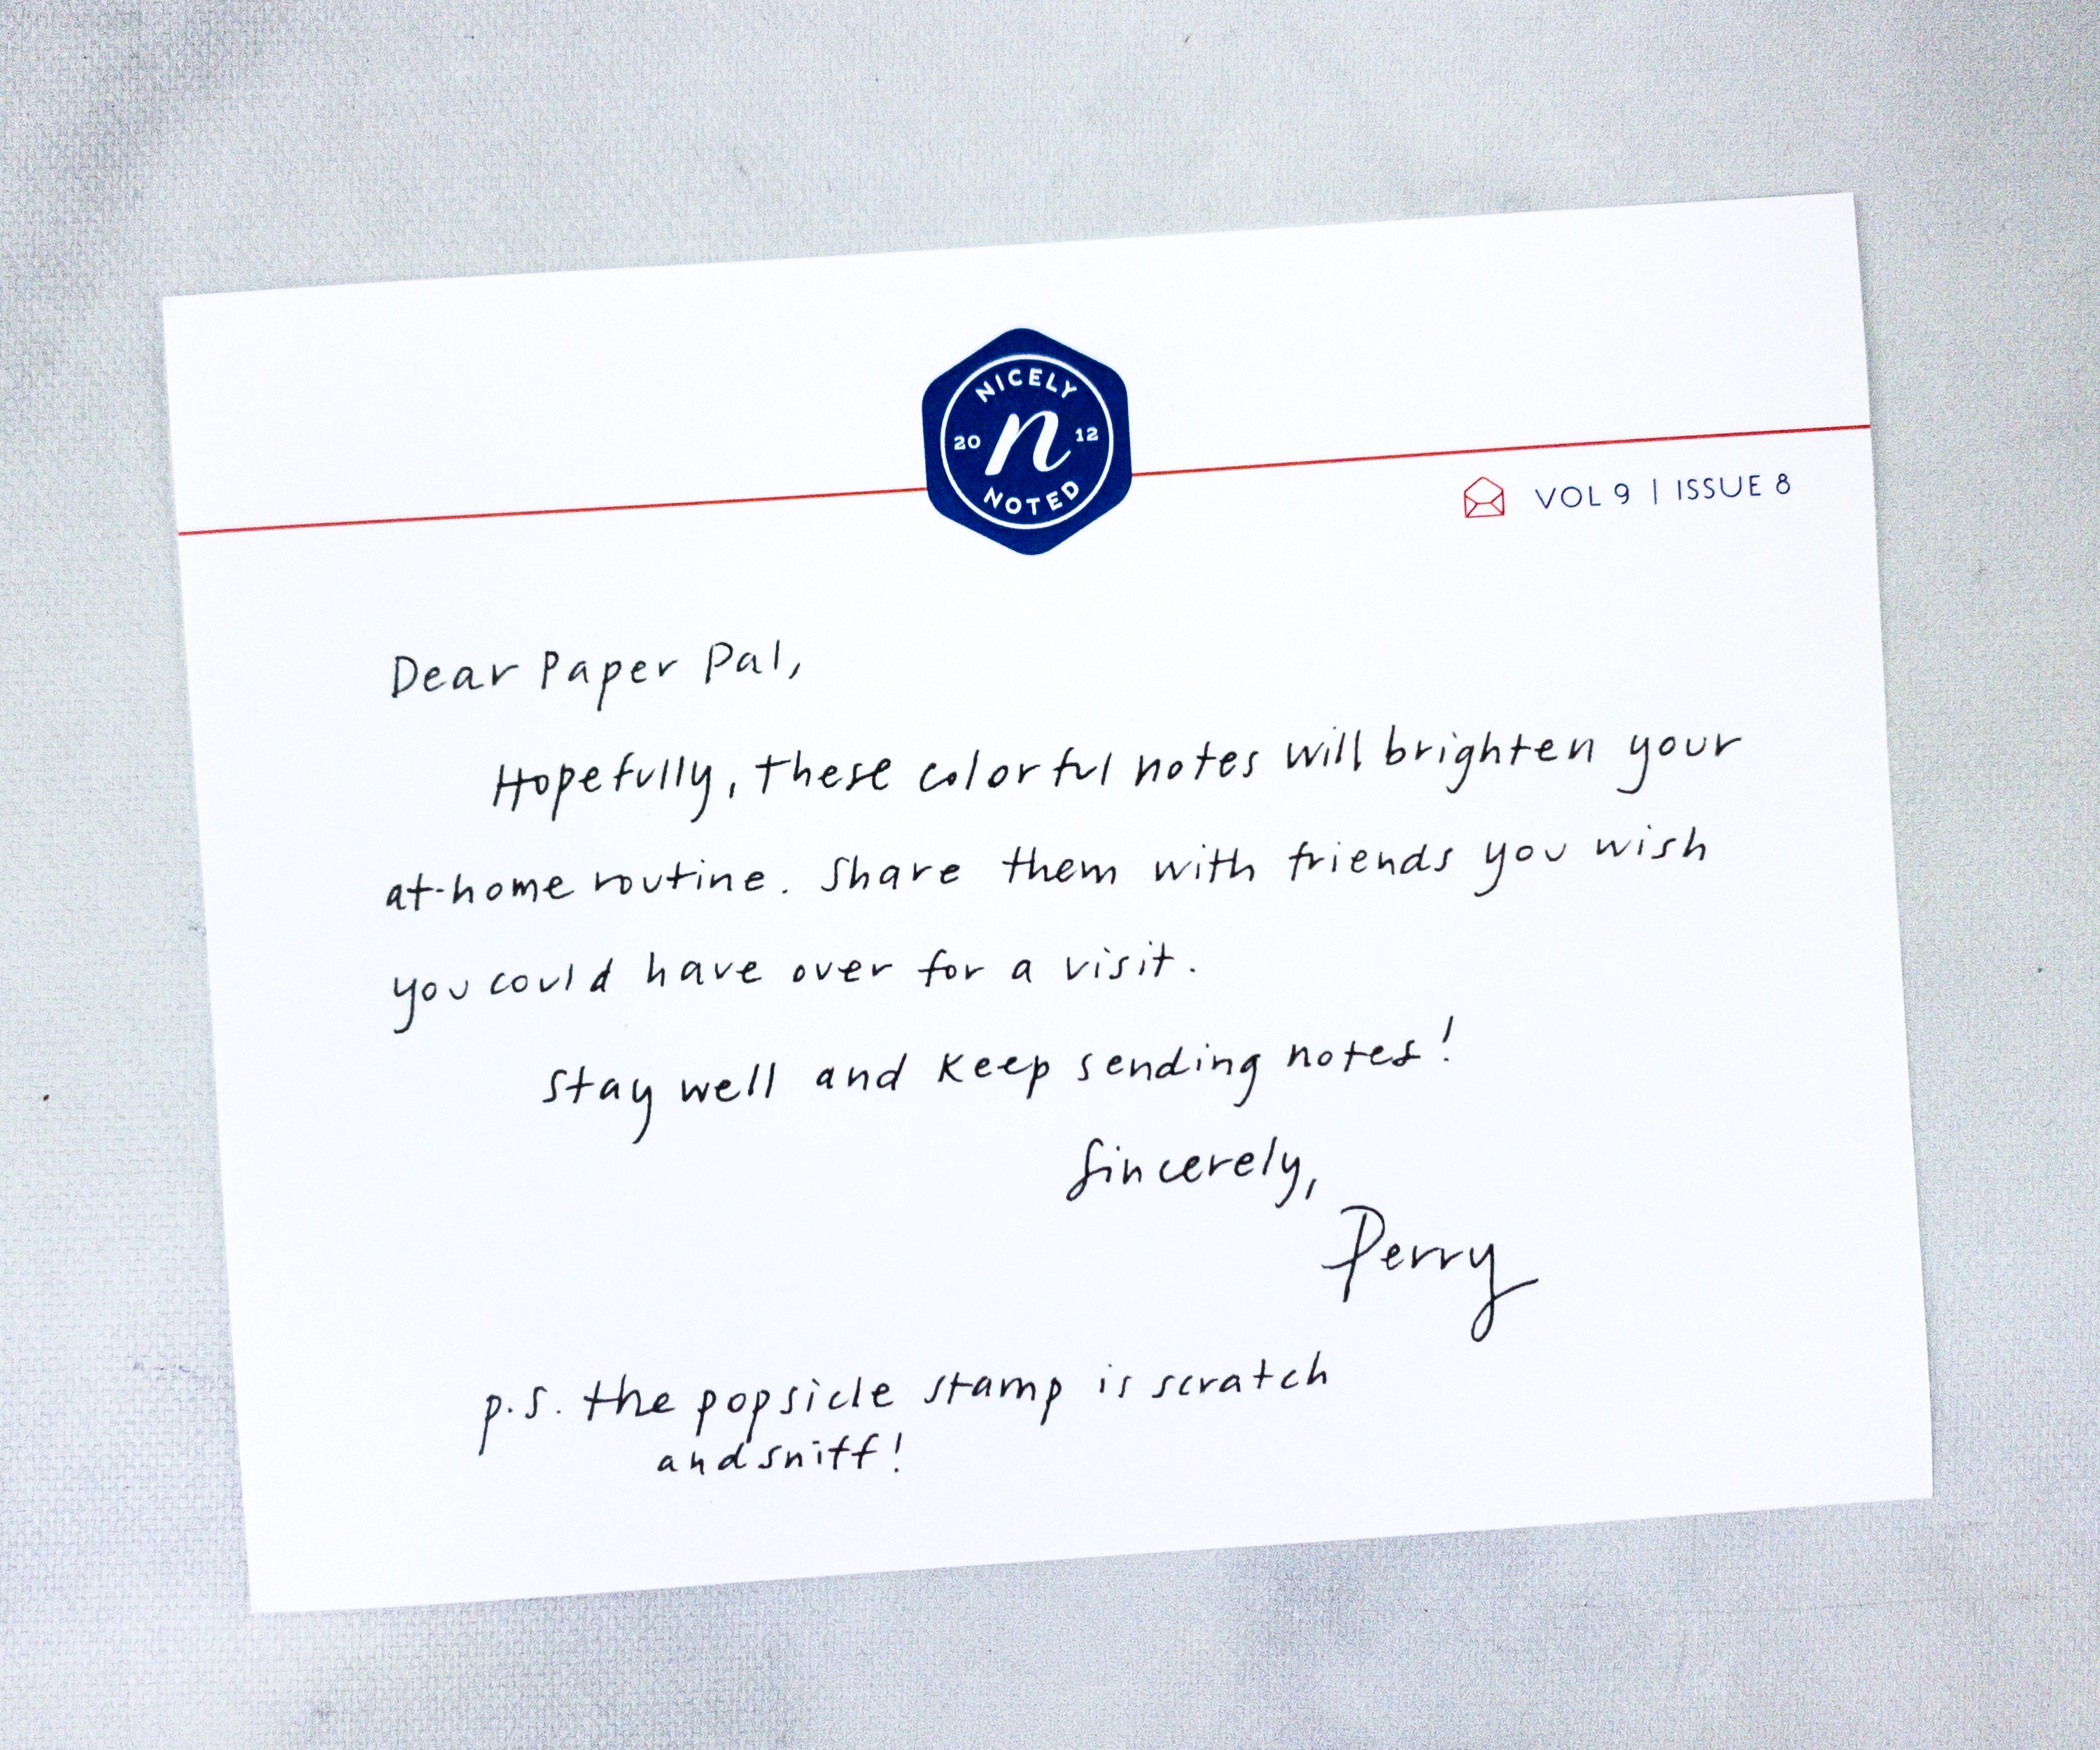 NICELY
20 n 12
NOTED
VOL 9 | ISSUE 8
Dear Paper Pal,
Hopefully, these colorful notes will brighten your
at-home routine. Share them with friends you wish
you could have over for a visit.
Stay well and keep sending notes!
Sincerely,
Perry
p.s. the popsicle stamp is scratch
and sniff!